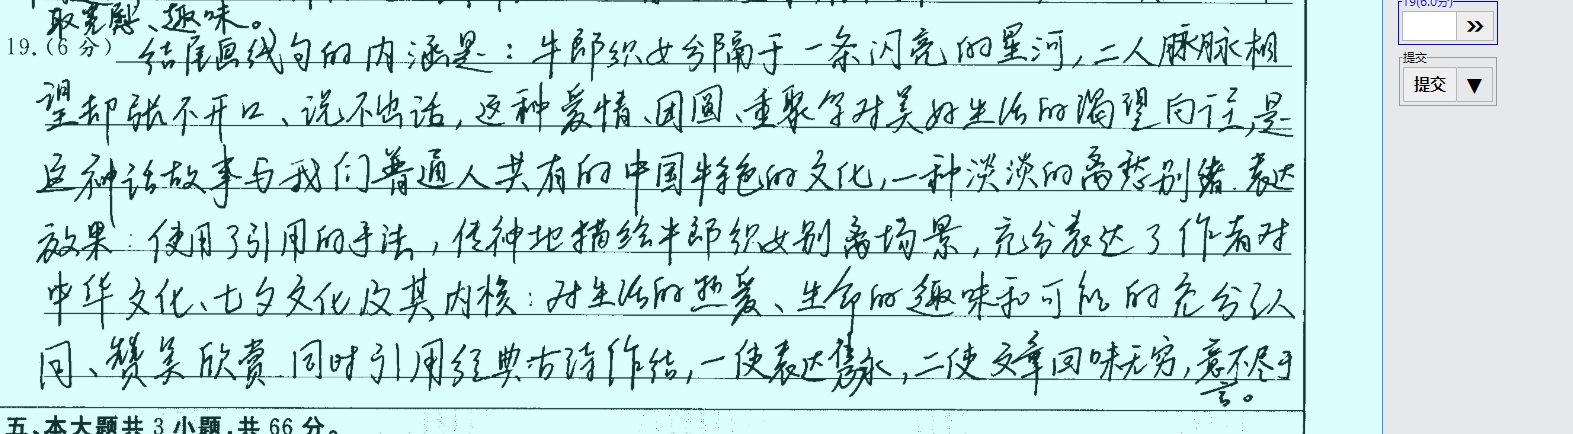 取宽慰、趣味。
19(6.0分)
19.(6分) 结尾画线句的内涵是：牛郎织女分隔于一条闪亮的星河，二人脉脉相
提交
望却张不开口、说不出话，这种爱情、团圆、重聚等对美好生活的渴望向往，是
提交
这神话故事与我们普通人共有的中国特色的文化，一种淡淡的离愁别绪.表达
效果：使用了引用的手法，传神地描绘牛郎织女别离场景，充分表达了作者对
中华文化、七夕文化及其内核：对生活的热爱、生命的趣味和可能的充分认
同、赞美欣赏.同时引用经典古诗作结，一使表达隽永，二使文章回味无穷，意不尽于
言。
五、本大题共3小题，共66分。